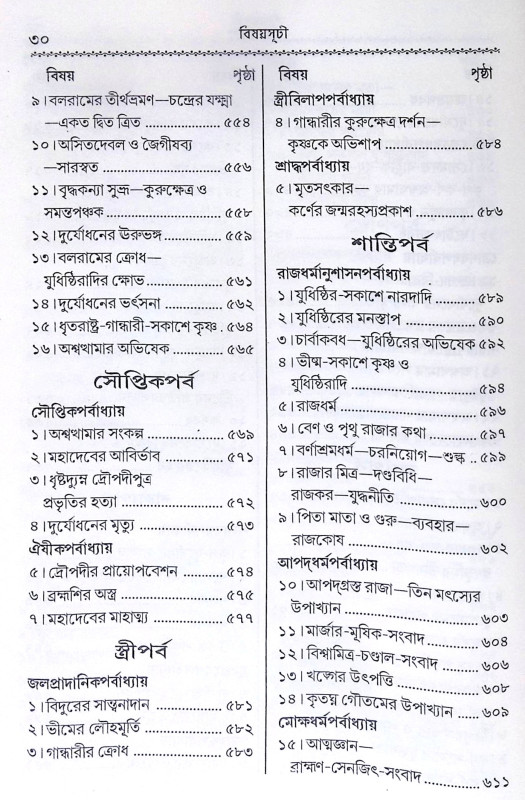 ৩০
বিষয়সূচী
বিষয় পৃষ্ঠা
৯। বলরামের তীর্থভ্রমণ—চন্দ্রের যক্ষ্মা
—একত দ্বিত ত্রিত ................ ৫৫৪
১০। অসিতদেবল ও জৈগীষব্য
—সারস্বত ........................ ৫৫৬
১১। বৃদ্ধকন্যা সুভ্রূ—কুরুক্ষেত্র ও
সমন্তপঞ্চক ........................ ৫৫৮
১২। দুর্যোধনের ঊরুভঙ্গ ............... ৫৫৯
১৩। বলরামের ক্রোধ—
যুধিষ্ঠিরাদির ক্ষোভ ............... ৫৬১
১৪। দুর্যোধনের ভর্ৎসনা ............... ৫৬২
১৫। ধৃতরাষ্ট্র-গান্ধারী-সকাশে কৃষ্ণ . ৫৬৪
১৬। অশ্বত্থামার অভিষেক ............. ৫৬৫
সৌপ্তিকপর্ব
সৌপ্তিকপর্বাধ্যায়
১। অশ্বত্থামার সংকল্প ................ ৫৬৯
২। মহাদেবের আবির্ভাব ............. ৫৭১
৩। ধৃষ্টদ্যুম্ন দ্রৌপদীপুত্র
প্রভৃতির হত্যা .................... ৫৭২
৪। দুর্যোধনের মৃত্যু .................. ৫৭৩
ঐষীকপর্বাধ্যায়
৫। দ্রৌপদীর প্রায়োপবেশন .......... ৫৭৪
৬। ব্রহ্মশির অস্ত্র ...................... ৫৭৫
৭। মহাদেবের মাহাত্ম্য ............... ৫৭৭
স্ত্রীপর্ব
জলপ্রাদানিকপর্বাধ্যায়
১। বিদুরের সান্ত্বনাদান ............... ৫৮১
২। ভীমের লৌহমূর্তি ................. ৫৮২
৩। গান্ধারীর ক্রোধ ................... ৫৮৩
বিষয় পৃষ্ঠা
স্ত্রীবিলাপপর্বাধ্যায়
৪। গান্ধারীর কুরুক্ষেত্র দর্শন—
কৃষ্ণকে অভিশাপ ................ ৫৮৪
শ্রাদ্ধপর্বাধ্যায়
৫। মৃতসৎকার—
কর্ণের জন্মরহস্যপ্রকাশ .......... ৫৮৬
শান্তিপর্ব
রাজধর্মানুশাসনপর্বাধ্যায়
১। যুধিষ্ঠির-সকাশে নারদাদি ....... ৫৮৯
২। যুধিষ্ঠিরের মনস্তাপ ............... ৫৯০
৩। চার্বাকবধ—যুধিষ্ঠিরের অভিষেক ৫৯২
৪। ভীষ্ম-সকাশে কৃষ্ণ ও
যুধিষ্ঠিরাদি ........................ ৫৯৪
৫। রাজধর্ম ............................ ৫৯৬
৬। বেণ ও পৃথু রাজার কথা ......... ৫৯৭
৭। বর্ণাশ্রমধর্ম—চরনিয়োগ—শুল্ক .. ৫৯৯
৮। রাজার মিত্র—দণ্ডবিধি—
রাজকর—যুদ্ধনীতি .............. ৬০০
৯। পিতা মাতা ও গুরু—ব্যবহার—
রাজকোষ ......................... ৬০২
আপদ্‌ধর্মপর্বাধ্যায়
১০। আপদ্‌গ্রস্ত রাজা—তিন মৎস্যের
উপাখ্যান .......................... ৬০৩
১১। মার্জার-মূষিক-সংবাদ ............ ৬০৪
১২। বিশ্বামিত্র-চণ্ডাল-সংবাদ ......... ৬০৬
১৩। খড়্গের উৎপত্তি .................. ৬০৮
১৪। কৃতঘ্ন গৌতমের উপাখ্যান ...... ৬০৯
মোক্ষধর্মপর্বাধ্যায়
১৫। আত্মজ্ঞান—
ব্রাহ্মণ-সেনজিৎ-সংবাদ ......... ৬১১